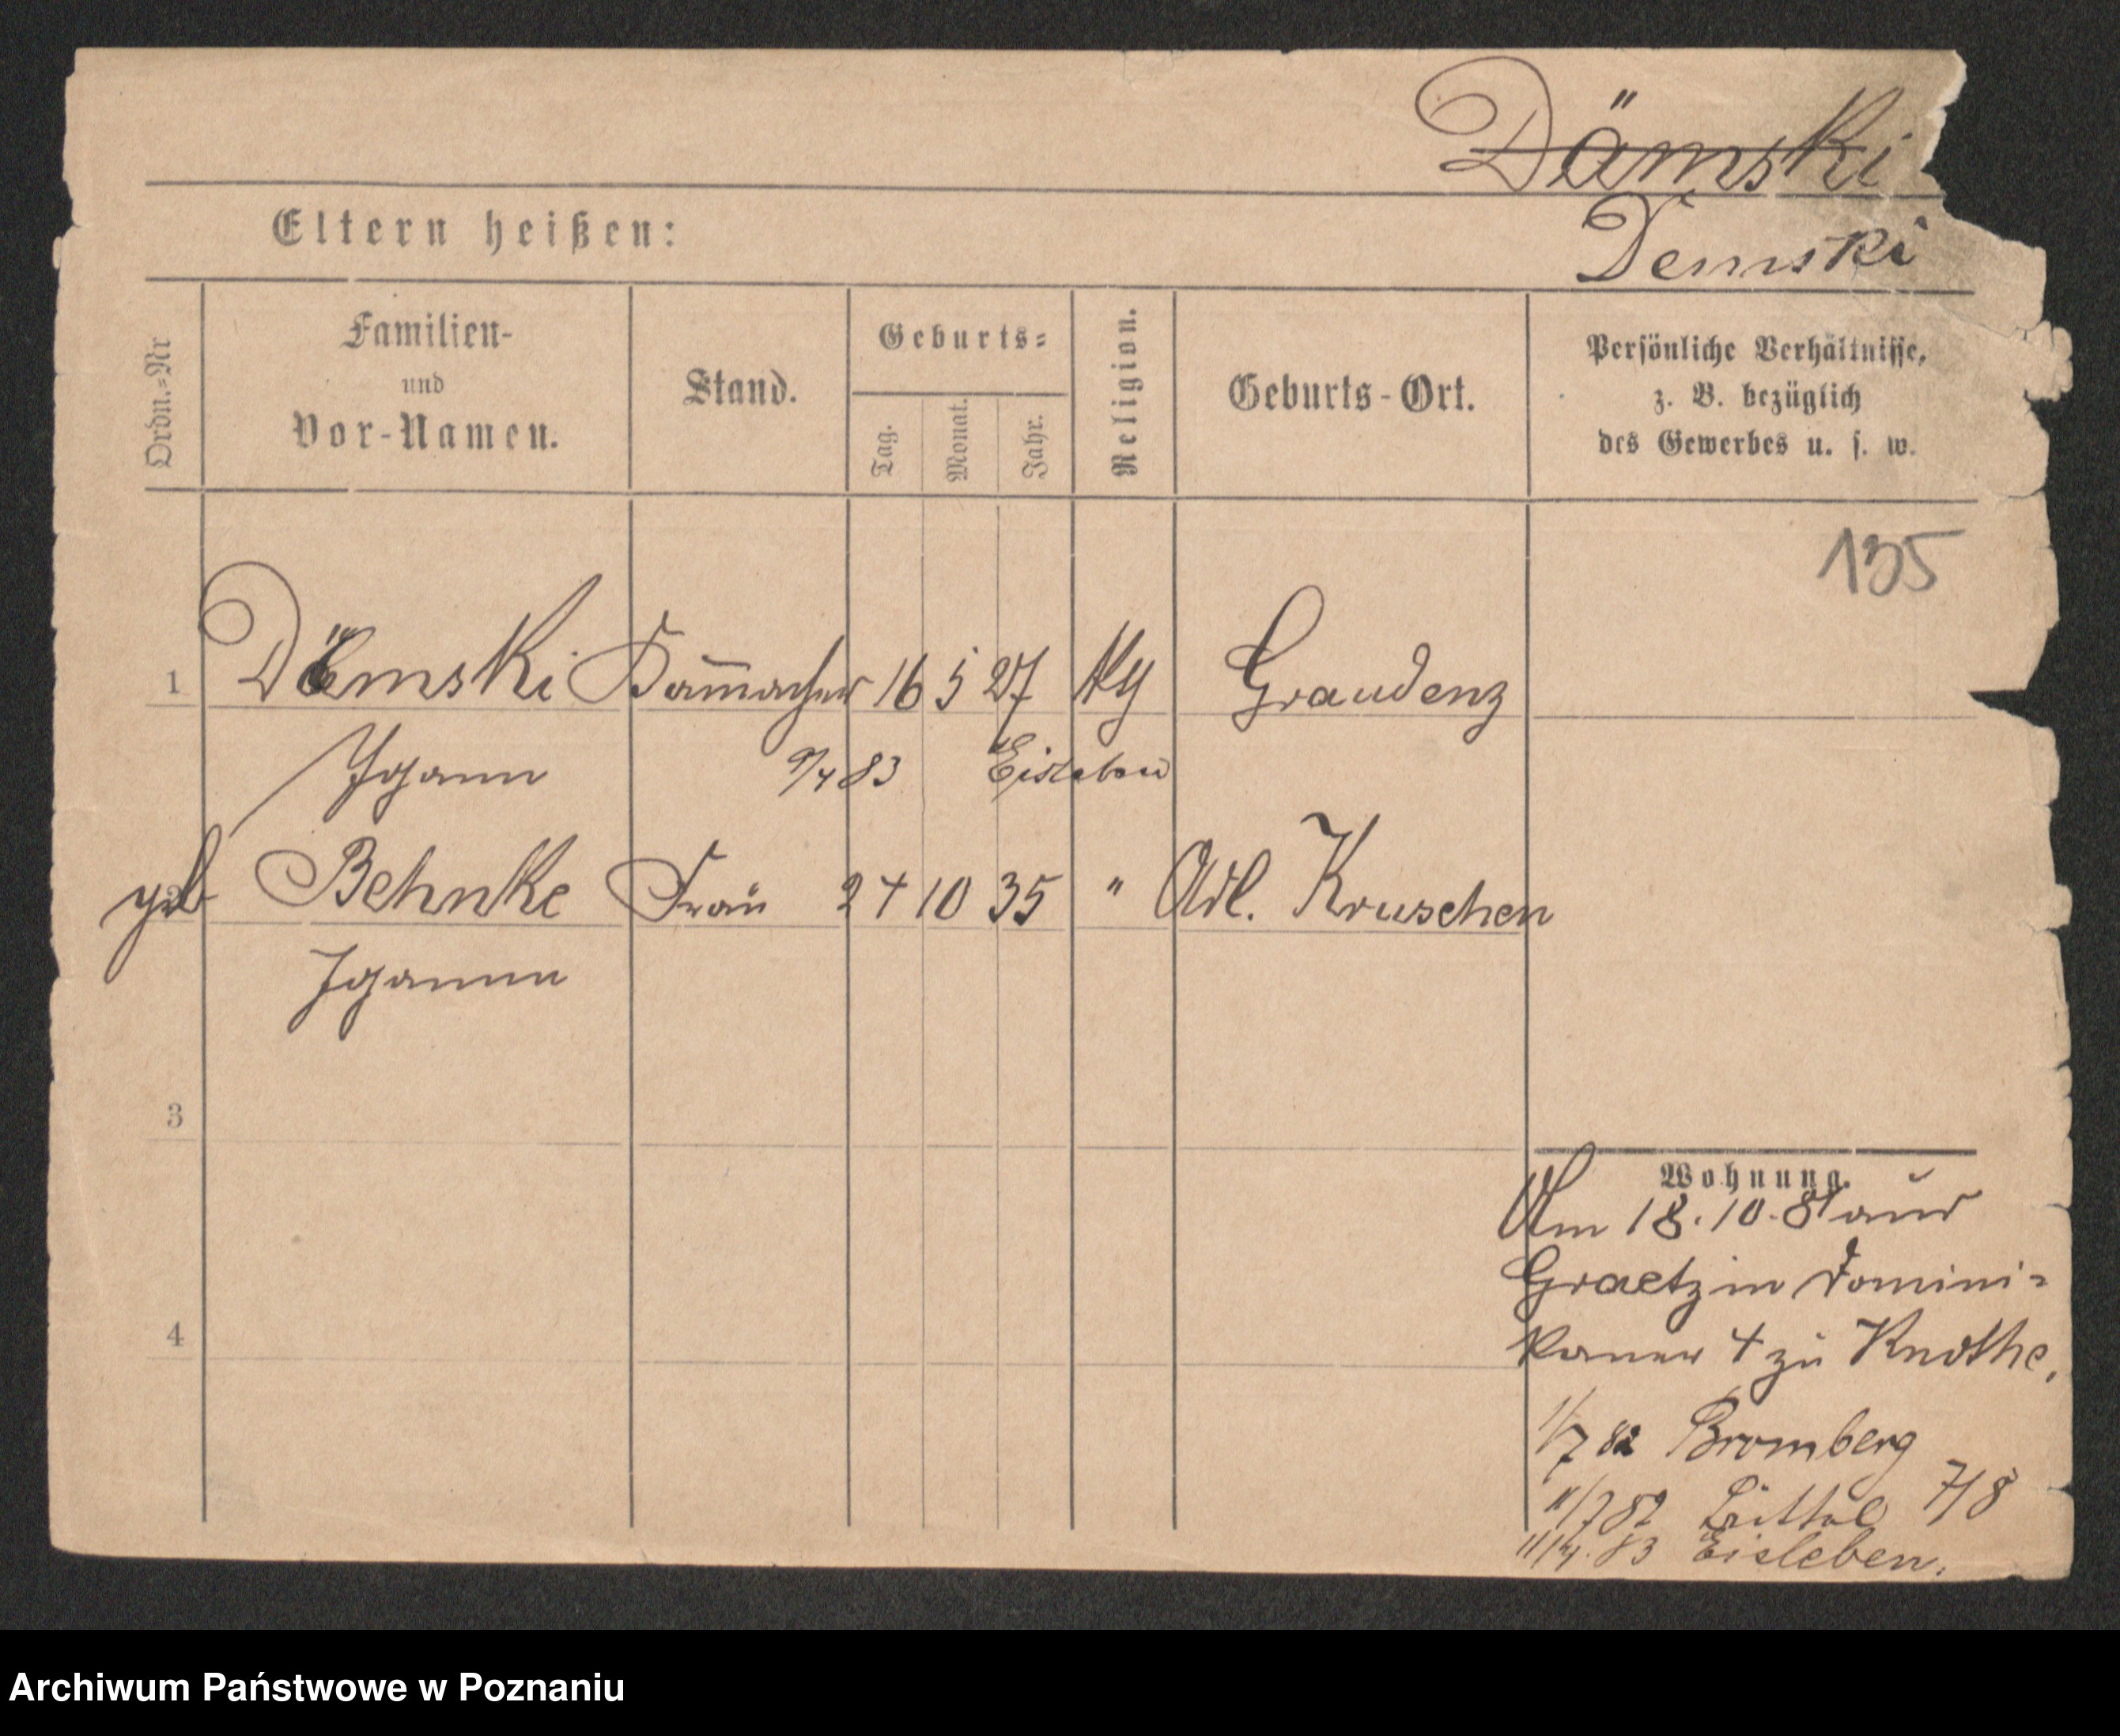 Dämski
Demski
Eltern heißen:
Ordn.=Nr
Familien-
und
Vor-Namen.
Stand.
Geburts=
Tag.
Monat.
Jahr.
Religion.
Geburts-Ort.
Persönliche Verhältnisse,
z. B. bezüglich
des Gewerbes u. s. w.
135
1 Dämski 16 5 27 Graudenz
Johann 9/4 83 Eisleben
geb Behnke Frau 24 10 35 " Adl. Kruschen
Johanna
3
Wohnung.
Am 18.10.81 aus
Graetz in Domini=
kaner 4 zu Knothe,
4
1/7 82 Bromberg
11/7 82 7/8
11/4. 83 Eisleben.
Archiwum Państwowe w Poznaniu